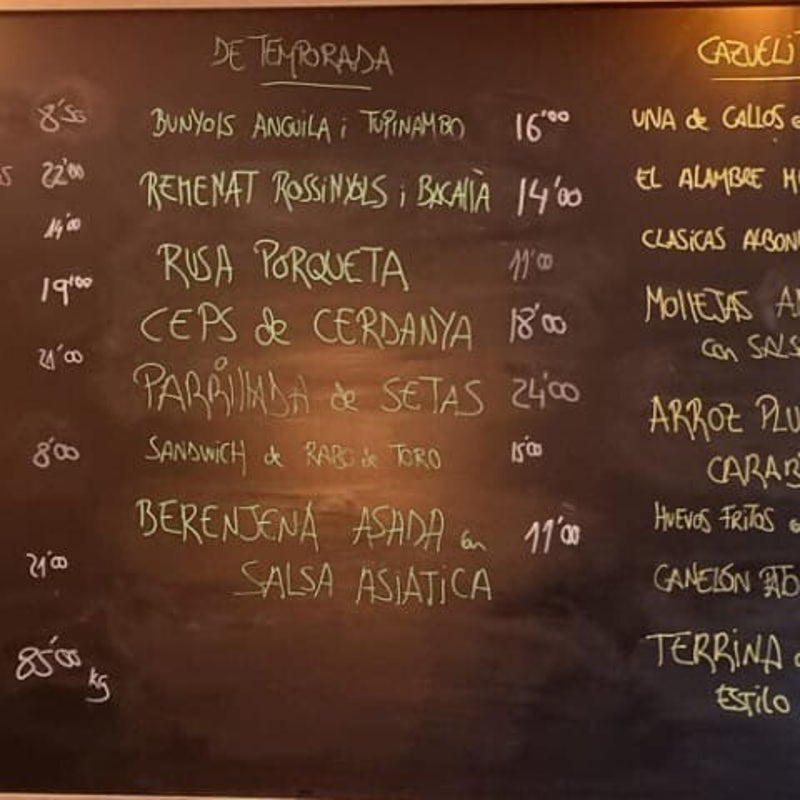 8'50
22'00
14'00
19'00
21'00
8'00
21'00
85'00 kg
DE TEMPORADA
BUNYOLS ANGUILA i TUPINAMBO 16'00
REMENAT ROSSINYOLS i BACALLÀ 14'00
RUSA PORQUETA 11'00
CEPS de CERDANYA 18'00
PARRILLADA de SETAS 24'00
SANDWICH de RABO de TORO 15'00
BERENJENA ASADA con 11'00
SALSA ASIATICA
CAZUELI
UNA de CALLOS
EL ALAMBRE
CLASICAS ALBON
MOLLEJAS
con SALS
ARROZ PLU
CARAB
HUEVOS FRITOS
CANELÓN
TERRINA
ESTILO